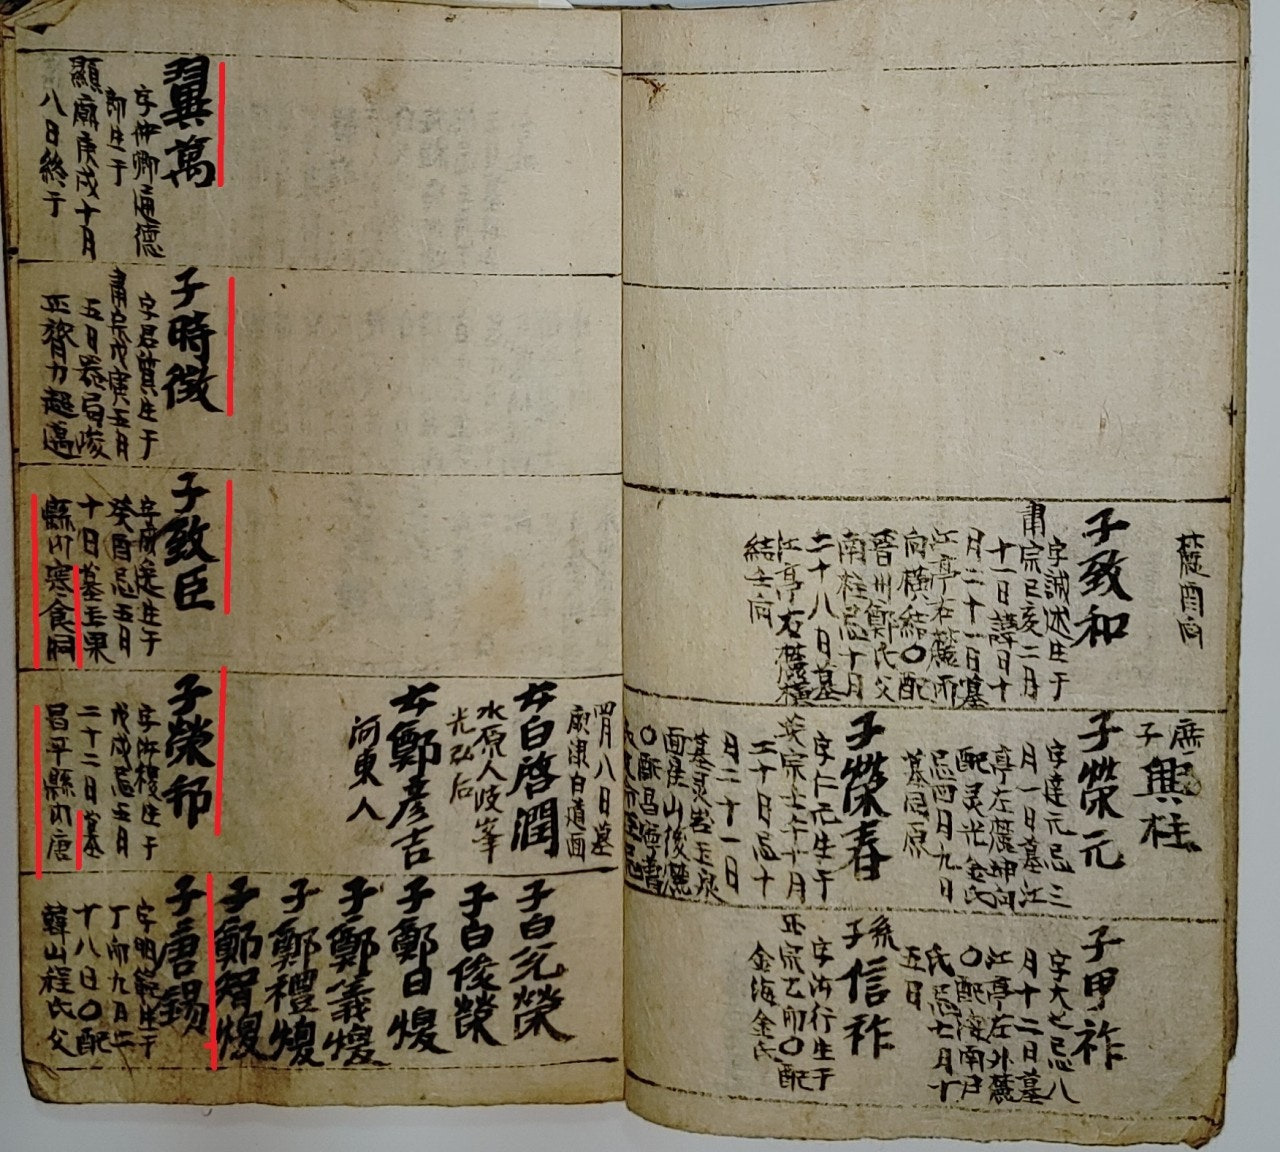 麓酉向
子致和
字誠述生于
肅宗己亥二月
十一日諱日十
月二十一日墓
江亭右麓酉
向橫結○配
晉州鄭氏父
南柱忌十月
二十八日墓
江亭右麓橫
結壬向
庶
子興柱
子榮元
字達元忌三
月一日墓江
亭左麓坤向
配灵光金氏
忌四月九日
子榮春
字仁元生于
英宗壬午十月
二十日忌十
月二十一日
墓灵岩玉泉
面崔山後麓
子甲祚
字大七忌八
月十二日墓
江亭左外麓
氏忌七月十
五日
系
子信祚
字汝行生于
正宗乙
○配
金海金氏
翼萬
字仲卿通德
郎生于
顯廟庚戌十月
八日終于
子時徵
字君質生于
肅宗戊寅五月
五日器局峻
正膂力超邁
子致臣
生于
癸酉忌五月
十日墓玉果
縣內寒食洞
四月八日墓
面
女白啓潤
水原人岐峯
光弘后
女鄭彦吉
河東人
子榮邦
生于
戊戌忌五月
二十二日墓
昌平縣內唐
子白允榮
子白俊榮
子鄭日煥
子鄭義煥
子鄭禮煥
子鄭智煥
子唐錫
字明範生于
丁卯九月二
十八日○配
韓山程氏父